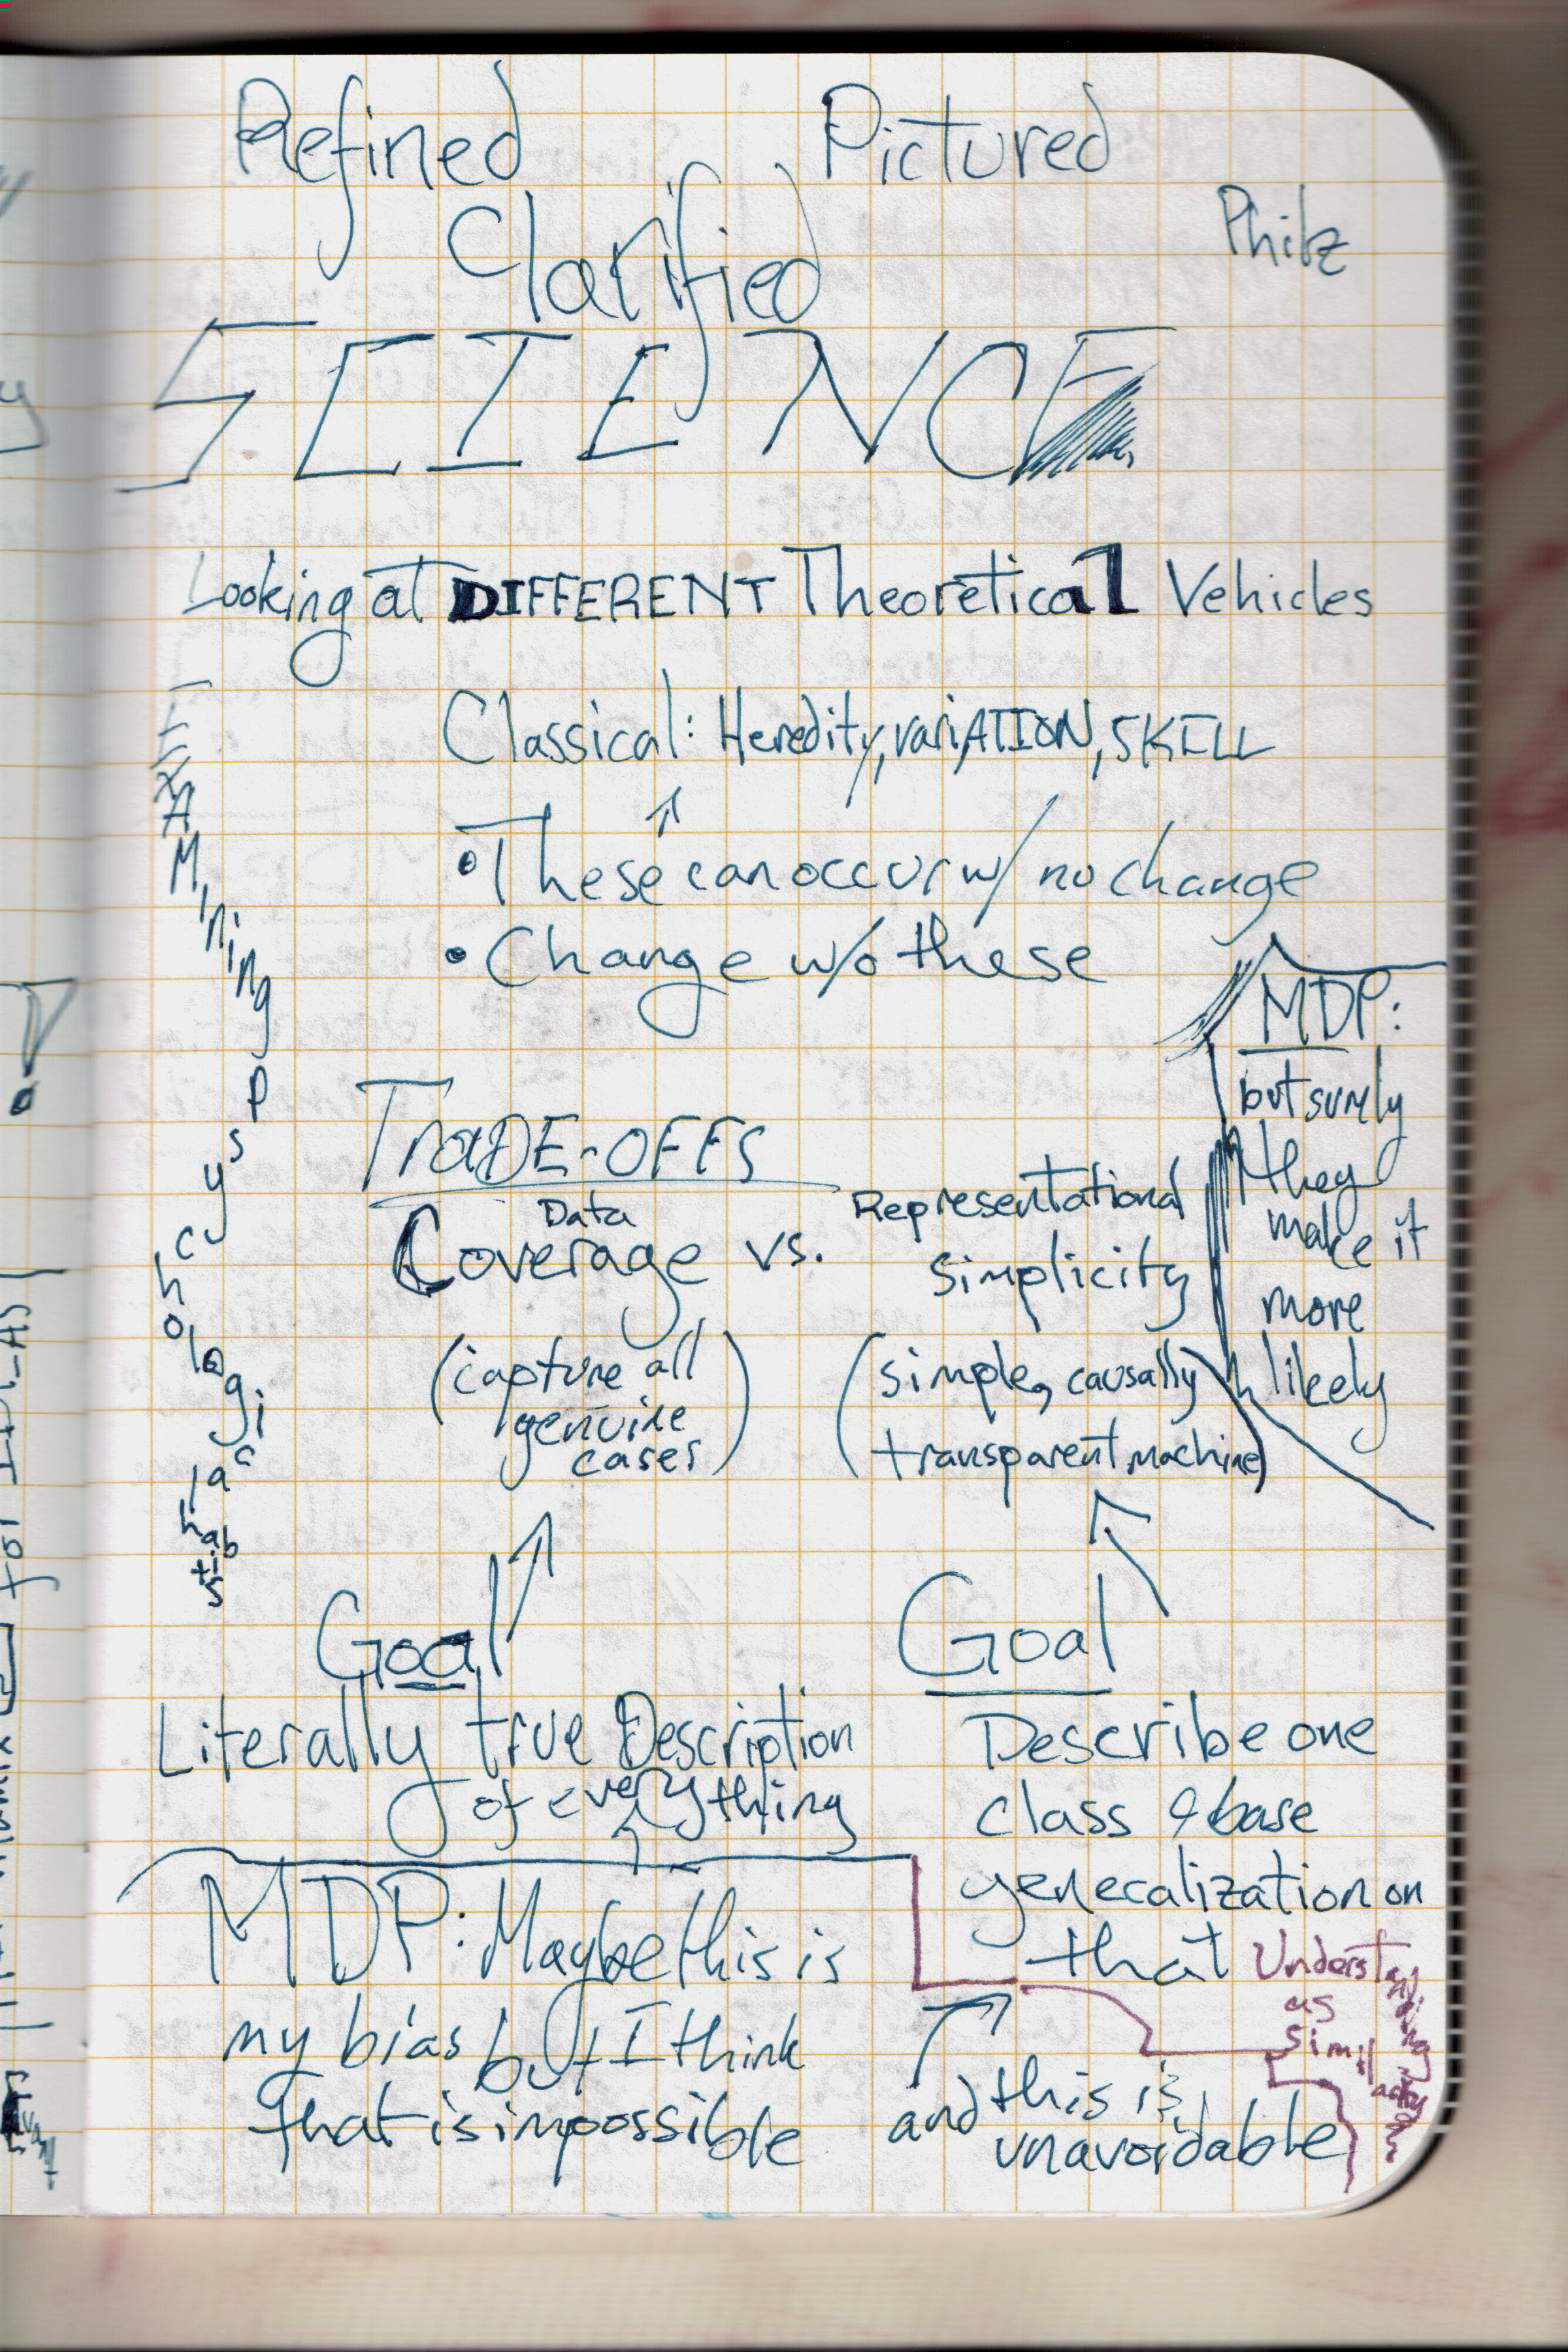 Refined Pictured
Clarified
Philz
SCIENCE
Looking at DIFFERENT Theoretical Vehicles
Classical: Heredity, variATION, SKILL
• These can occur w/ no change
• Change w/o these
EXAMining psychological habits
MDP:
but surely
they
make it
more
likely
TRADE-OFFS
Data
Coverage vs.
Representational
Simplicity
(capture all
genuine
cases)
(simple, causally
transparent machine)
Goal
Literally true Description
of everything
Goal
Describe one
class & base
generalization on
that
MDP: Maybe this is
my bias but I think
that is impossible
and this is
unavoidable
Understanding
as